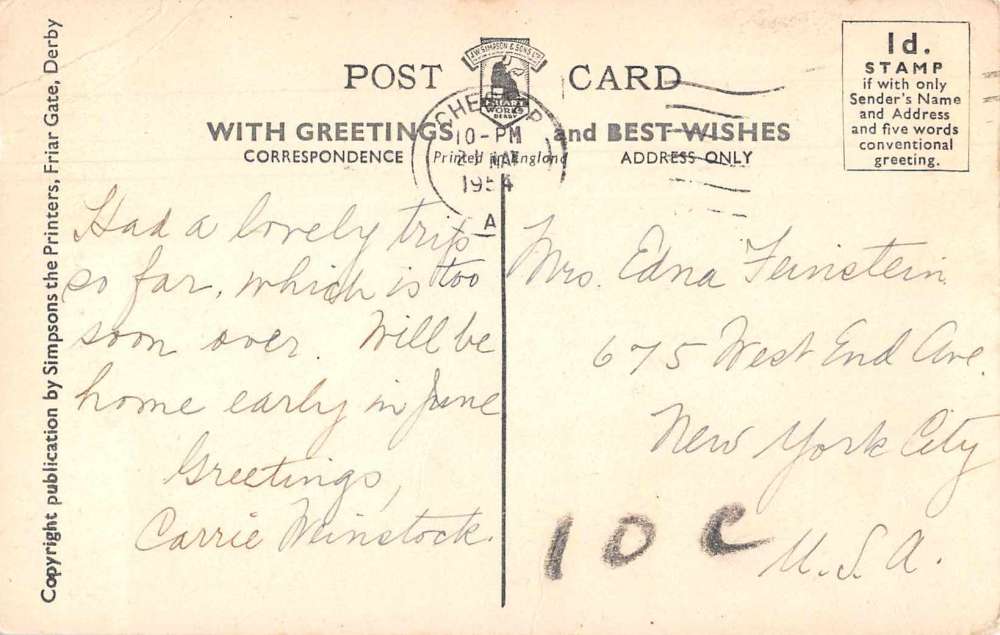 Copyright publication by Simpsons the Printers, Friar Gate, Derby
POST CARD
J.W. SIMPSON & SONS LTD
FRIARY
WORKS
DERBY
WITH GREETINGS and BEST WISHES
CORRESPONDENCE Printed in England ADDRESS ONLY
1d.
STAMP
if with only
Sender's Name
and Address
and five words
conventional
greeting.
10-PM
1954
A
Had a lovely trip
so far, which is too
soon over. Will be
home early in June
Greetings,
Carrie Minstock.
Mrs. Edna Feinstein
675 West End Ave.
New York City
U.S.A.
10 C